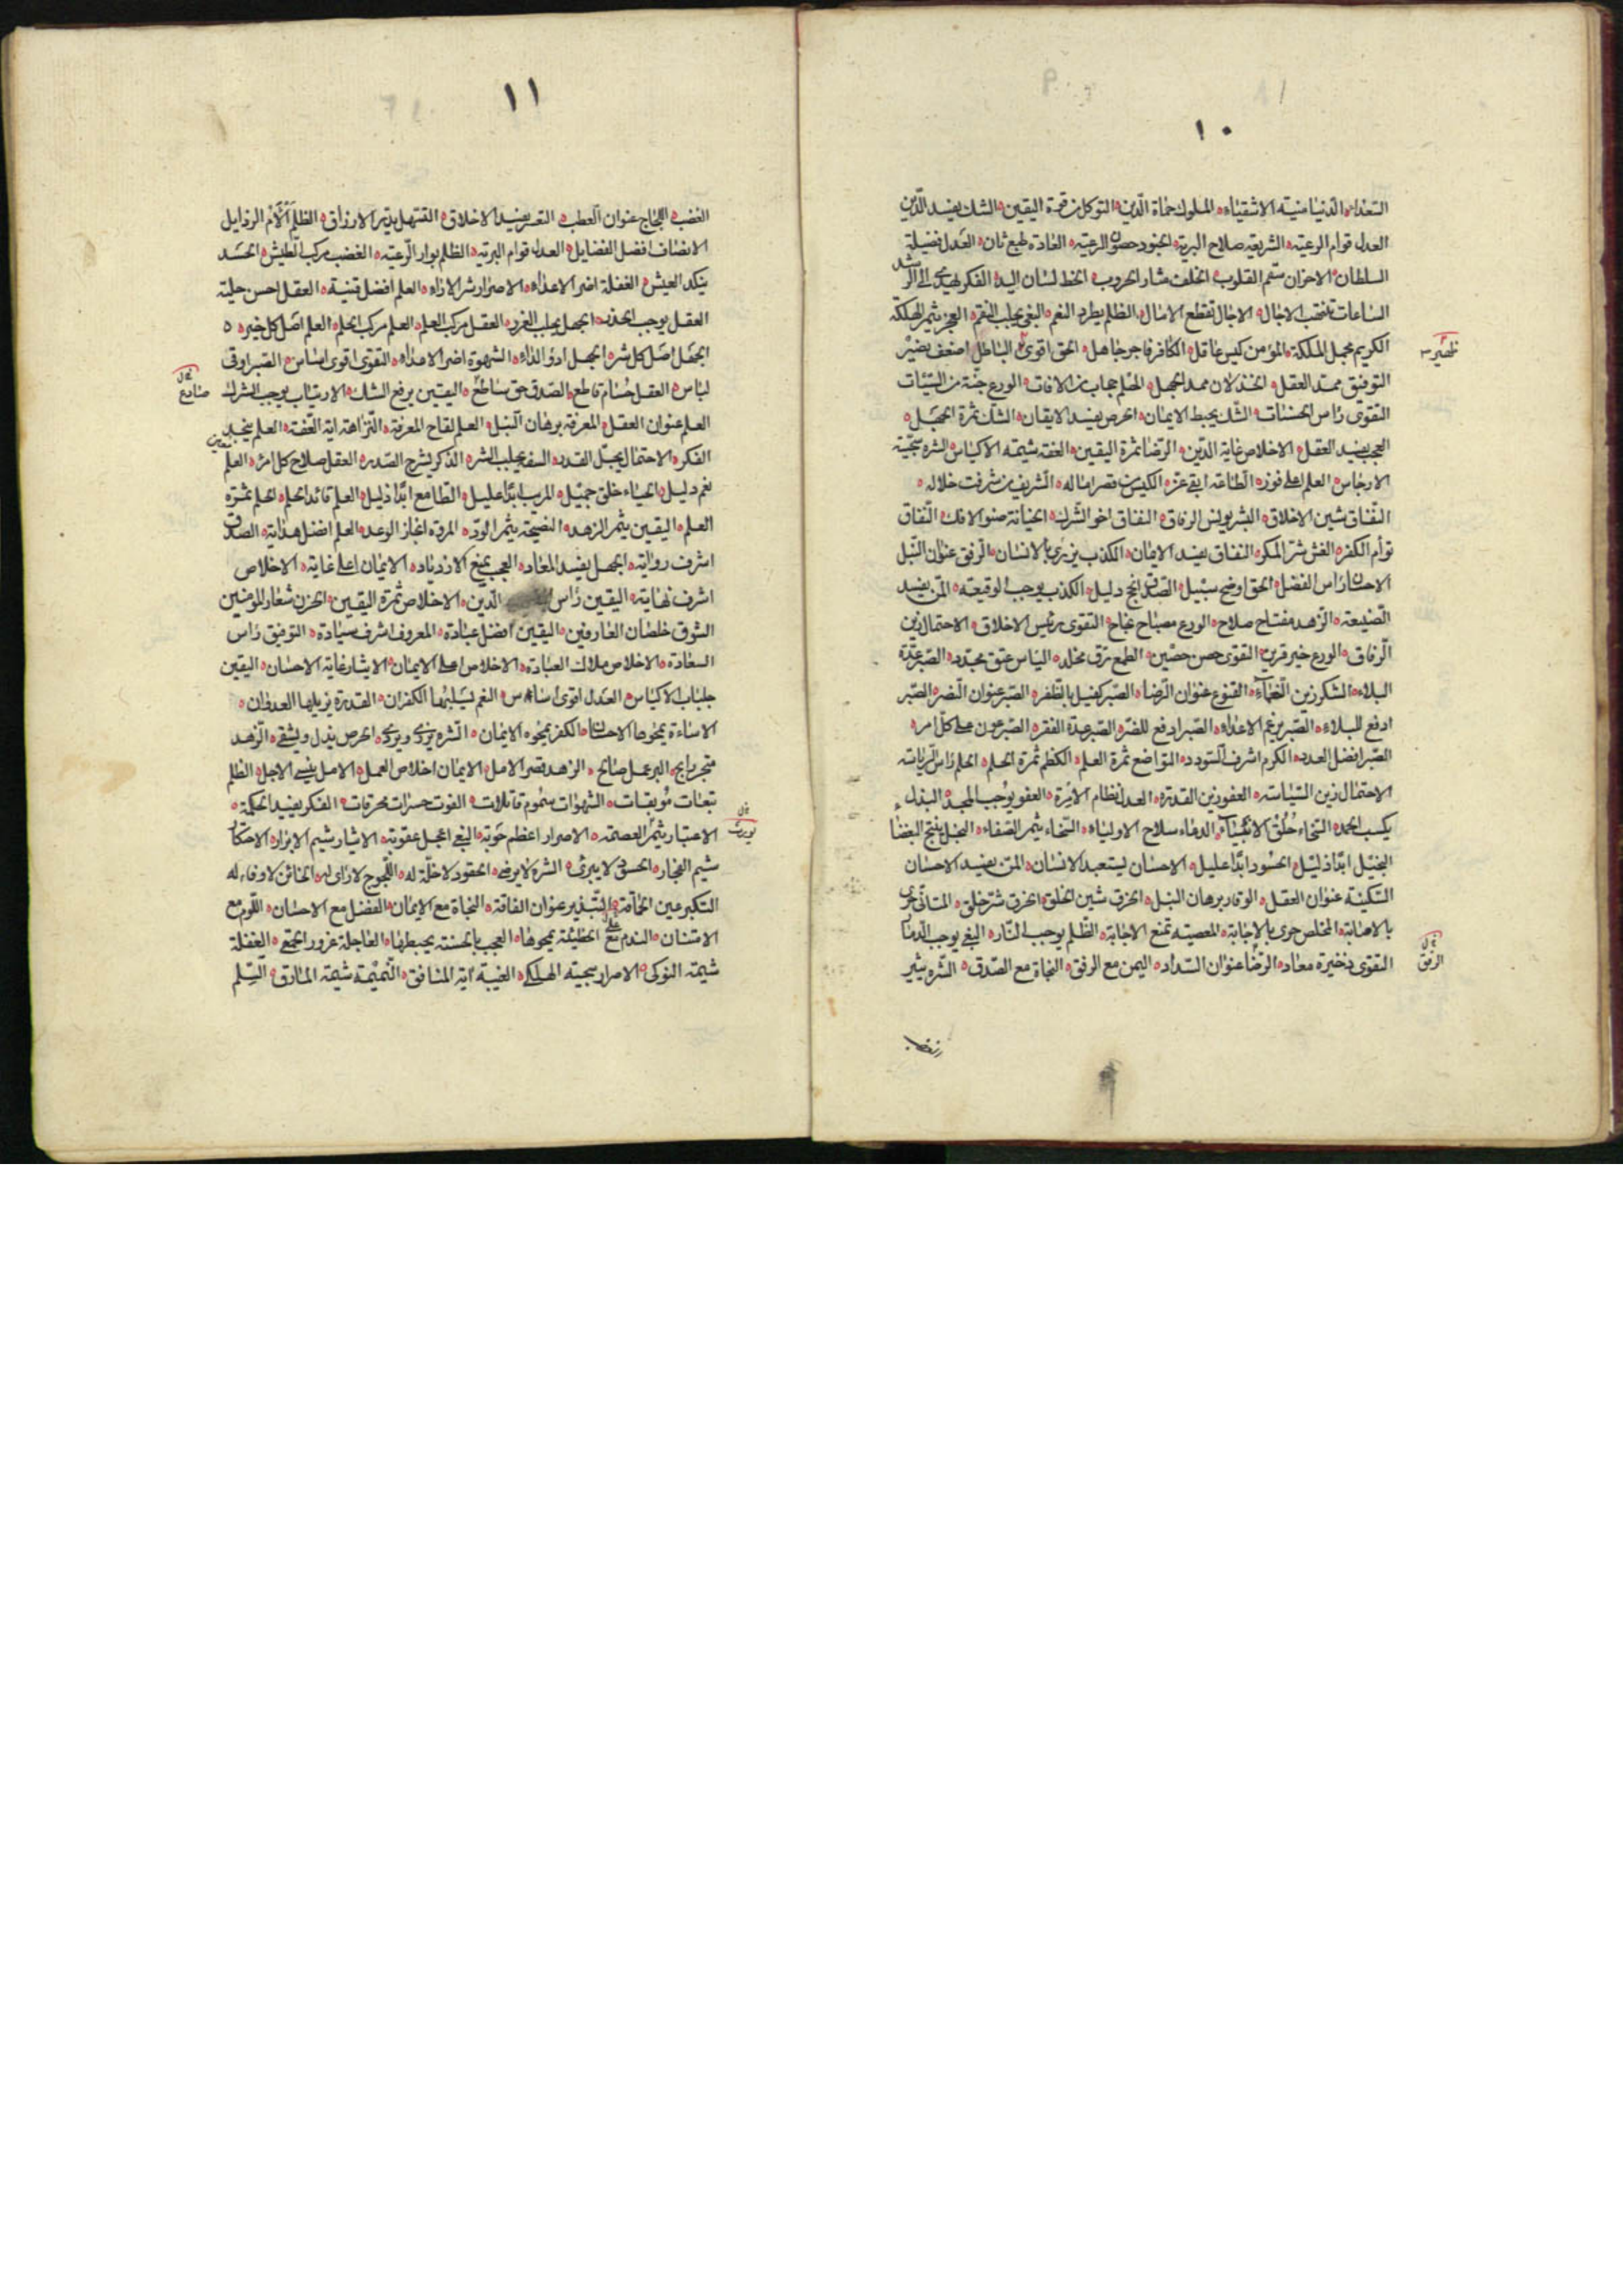 ١٠
السعداء الدنيا منية الاشقياء الملوك حماة الدين التوكل من قوة اليقين الشك يفسد الدين
العدل قوام الرعية الشريعة صلاح البرية الجنود حصون الرعية العادة طبع ثان العدل فضيلة
السلطان الاحزان سقم القلوب الخلف مثار الحروب الخط لسان اليد الفكر يهدى الى الرشد
الساعات تنتهب الاجال الاجال تقطع الامال الظلم يطرد النعم البغى يجلب النقم العجز يثمر الهلكة
الكريم مجمل الملكة المؤمن كيس عاقل الكافر فاجر جاهل الحق اقوى الباطل اضعف نصير
ظهير
التوفيق ممد العقل الخذلان ممد الجهل الحلم حجاب من الافات الورع جنة من السيئات
التقوى راس الحسنات الشك يحبط الايمان الحرص يفسد الايقان الشك ثمرة الجهل
العجب يفسد العقل الاخلاص غاية الدين الرضا ثمرة اليقين العفة شيمة الاكياس الشره سجية
الارجاس العلم اعلى فوز الطاعة ابقى عز الكيس من قصر اماله الشريف من شرفت خلاله
النفاق شين الاخلاق البشر يونس الرفاق النفاق اخو الشرك الخيانة صنو الافك النفاق
توأم الكفر الغش شر المكر النفاق يفسد الايمان الكذب يزرى بالانسان الرفق عنوان النبل
الاحسان راس الفضل الحق اوضح سبيل الصدق انجح دليل الكذب يوجب الوقيعة المن يفسد
الصنيعة الزهد مفتاح صلاح الورع مصباح نجاح التقوى رئيس الاخلاق الاحتمال زين
الرفاق الورع خير قرين التقوى حصن حصين الطمع رق مخلد الياس عتق مجدد الصبر عدة
البلاء الشكر زين النعماء القنوع عنوان الرضا الصبر كفيل بالظفر الصبر عنوان النصر الصبر
ادفع للبلاء الصبر يرغم الاعداء الصبر ادفع للضر الصبر عدة الفقر الصبر عون على كل امر
الصبر افضل العدد الكرم اشرف السودد التواضع ثمرة العلم الكظم ثمرة الحلم الحلم راس الرياسة
الاحتمال زين السياسة العفو زين القدرة العدل نظام الامرة العفو يوجب المجد البذل
يكسب الحمد السخاء خلق الانبياء الدعاء سلاح الاولياء السخاء يثمر الصفاء البخل ينتج البغضاء
البخيل ابدا ذليل الحسود ابدا عليل الاحسان يستعبد الانسان المن يفسد الاحسان
السكينة عنوان العقل الوقار برهان النبل الخرق شين الخلق الخرق شر خلق المتانى حرى
بالاصابة المخلص حرى بالاجابة المعصية تمنع الاجابة الظلم يوجب النار البغى يوجب الدمار
التقوى ذخيرة معاد الرضا عنوان السداد اليمن مع الرفق النجاة مع الصدق الشره يثير
الرفق
١١
الغضب اللجاج عنوان العطب التقتر يفسد الاخلاق التسهل يدر الارزاق الظلم ألأم الرذايل
الانصاف افضل الفضايل العدل قوام البرية الظلم بوار الرعية الغضب مركب الطيش الحسد
ينكد العيش الغفلة اضر الاعداء الاصرار شر الاراء العلم افضل قنية العقل احسن حلية
العقل يوجب الحذر الجهل يجلب الغرر العقل مركب العلم العلم مركب الحلم العلم اصل كل خير
الجهل اصل كل شر الجهل ادوأ الداء الشهوة اضر الاعداء التقوى اقوى اساس الصبر اوقى
لباس العقل حسام قاطع الصدق حق ساطع اليقين يرفع الشك الارتياب يوجب الشرك
صادع
العلم عنوان العقل المعرفة برهان النبل العلم لقاح المعرفة النزاهة اية العفة العلم ينجد
الفكر الاحتمال يجل القدر السفه يجلب الشر الذكر يشرح الصدر العقل صلاح كل امر العلم
نعم دليل الحياء خلق جميل المريب ابدا عليل الطامع ابدا ذليل العلم قائد الحلم الحلم ثمرة
العلم اليقين يثمر الزهد النصيحة يثمر الود المروة انجاز الوعد العلم افضل هداية الصدق
اشرف رواية الجهل يفسد المعاد العجب يمنع الازدياد الايمان اعلى غاية الاخلاص
اشرف نهاية اليقين راس الدين الاخلاص ثمرة اليقين الحزن شعار المؤمنين
الشوق خلصان العارفين اليقين افضل عبادة المعروف اشرف سيادة التوفيق راس
السعادة الاخلاص ملاك العبادة الاخلاص اعلى الايمان الايثار غاية الاحسان اليقين
جلباب الاكياس العدل اقوى اساس النعم يسلبها الكفران القدرة يزيلها العدوان
الاساءة يمحوها الاحسان الكفر يمحوه الايمان الشره يزرى ويردى الحرص يذل ويشقى الزهد
متجر رابح البر عمل صالح الزهد قصر الامل الايمان اخلاص العمل الامل ينسى الاجل الظلم
تبعات موبقات الشهوات سموم قاتلات الفوت حسرات محرقات الفكر يفيد الحكمة
يورث
الاعتبار يثمر العصمة الاصرار اعظم حوبة البغى اعجل عقوبة الايثار شيم الابرار الاحتكار
شيم الفجار الحسود لا يبرئ الشره لا يرضى الحقود لا خلة له اللجوج لا راى له الخائن لا وفاء له
التكبر عين الحماقة التبذير عنوان الفاقة النجاة مع الايمان الفضل مع الاحسان اللوم مع
الامتنان الندم على الخطيئة يمحوها العجب بالحسنة يحبطها العاجلة غرور الحمقى الغفلة
شيمة النوكى الاصرار سجية الهلكى الغيبة اية المنافق النميمة شيمة المارق السلم